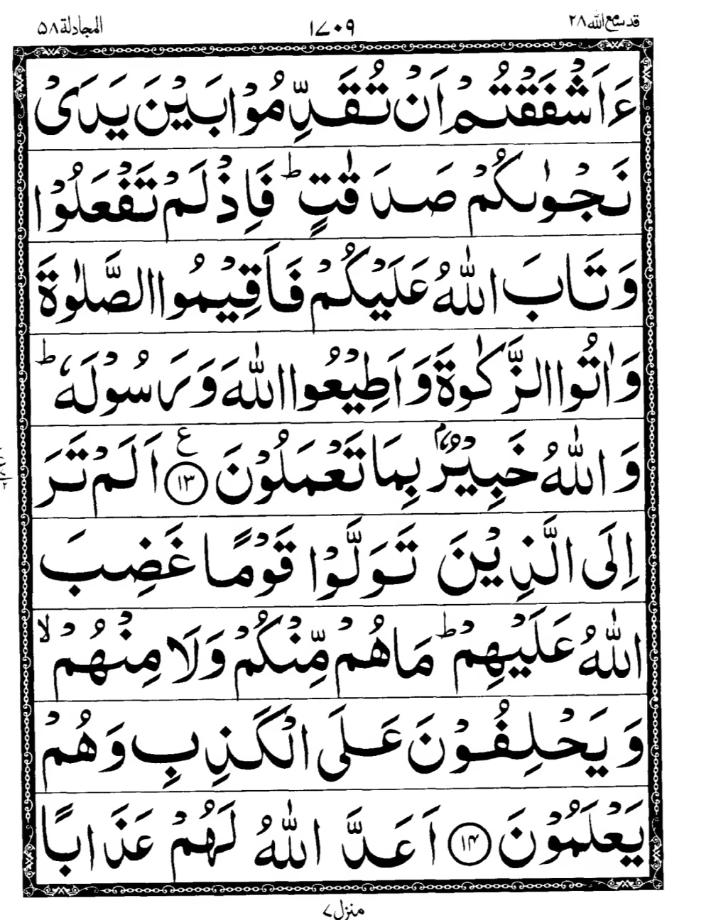 قد سمع الله ٢٨ ١٧٠٩ المجادلة ٥٨
ءَاَشْفَقْتُمْ اَنْ تُقَدِّمُوْا بَيْنَ يَدَىْ
نَجْوٰىكُمْ صَدَقٰتٍ ؕ فَاِذْ لَمْ تَفْعَلُوْا
وَتَابَ اللّٰهُ عَلَيْكُمْ فَاَقِيْمُوا الصَّلٰوةَ
وَاٰتُوا الزَّكٰوةَ وَاَطِيْعُوا اللّٰهَ وَرَسُوْلَهٗ ؕ
وَاللّٰهُ خَبِيْرٌۢ بِمَا تَعْمَلُوْنَ ﴿۱۳﴾ ع اَلَمْ تَرَ
اِلَى الَّذِيْنَ تَوَلَّوْا قَوْمًا غَضِبَ
اللّٰهُ عَلَيْهِمْ ؕ مَا هُمْ مِّنْكُمْ وَلَا مِنْهُمْ ۙ
وَيَحْلِفُوْنَ عَلَى الْكَذِبِ وَهُمْ
يَعْلَمُوْنَ ﴿۱۴﴾ اَعَدَّ اللّٰهُ لَهُمْ عَذَابًا
منزل ٧